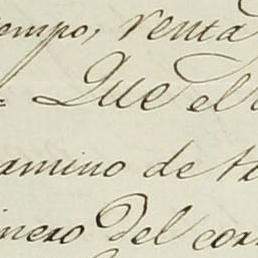 empo, renta
Que el
amino de
inero del cor